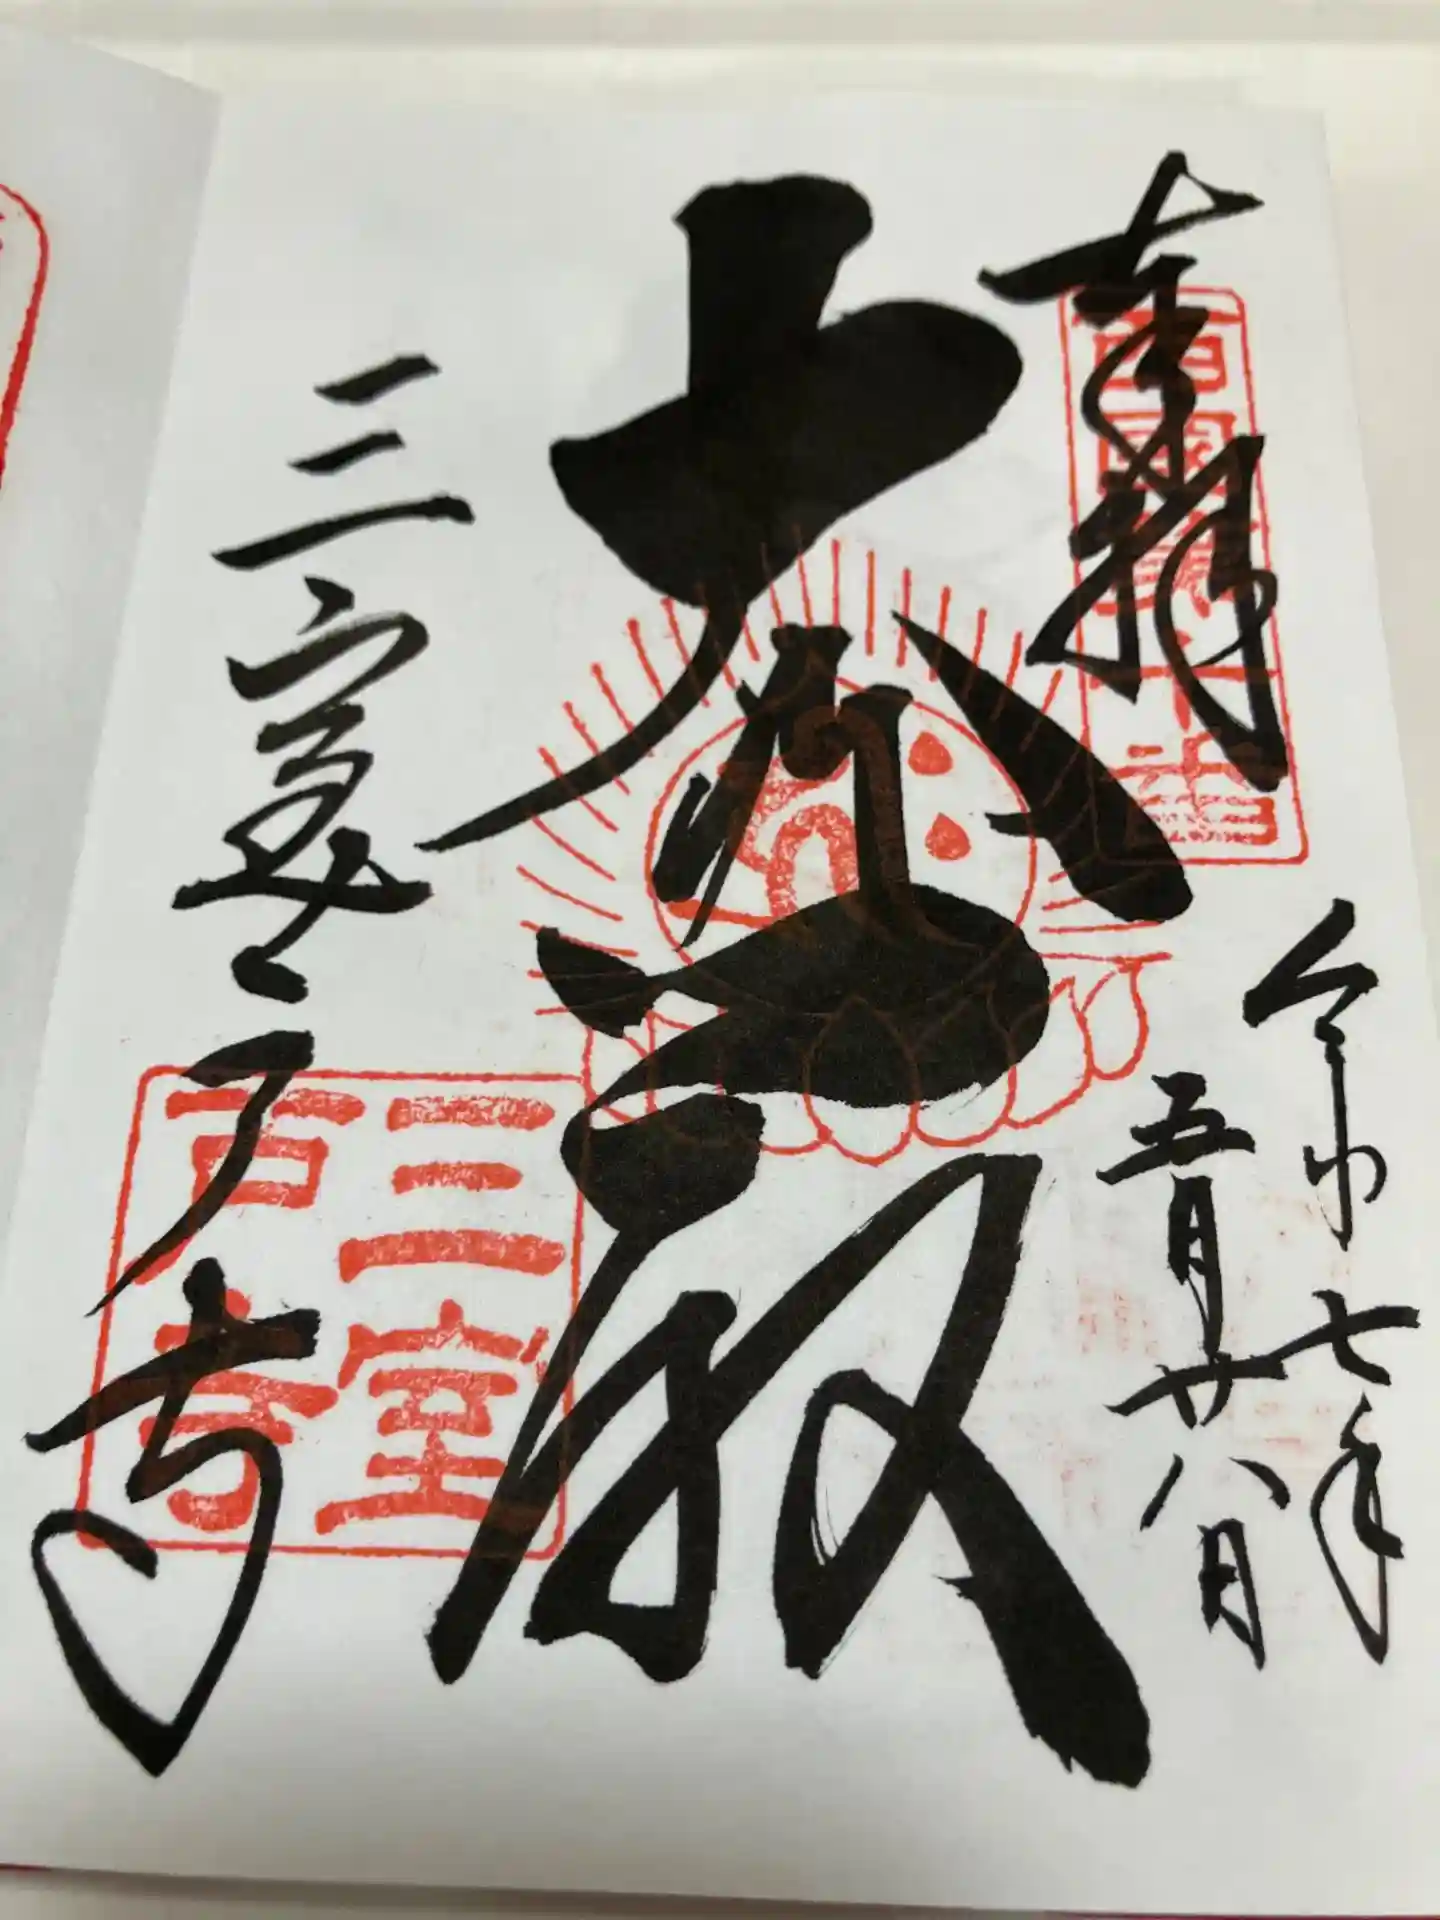 奉拝
西國第十番
令和七年
五月廿八日
大悲殿
三室戸寺
三室
戸寺